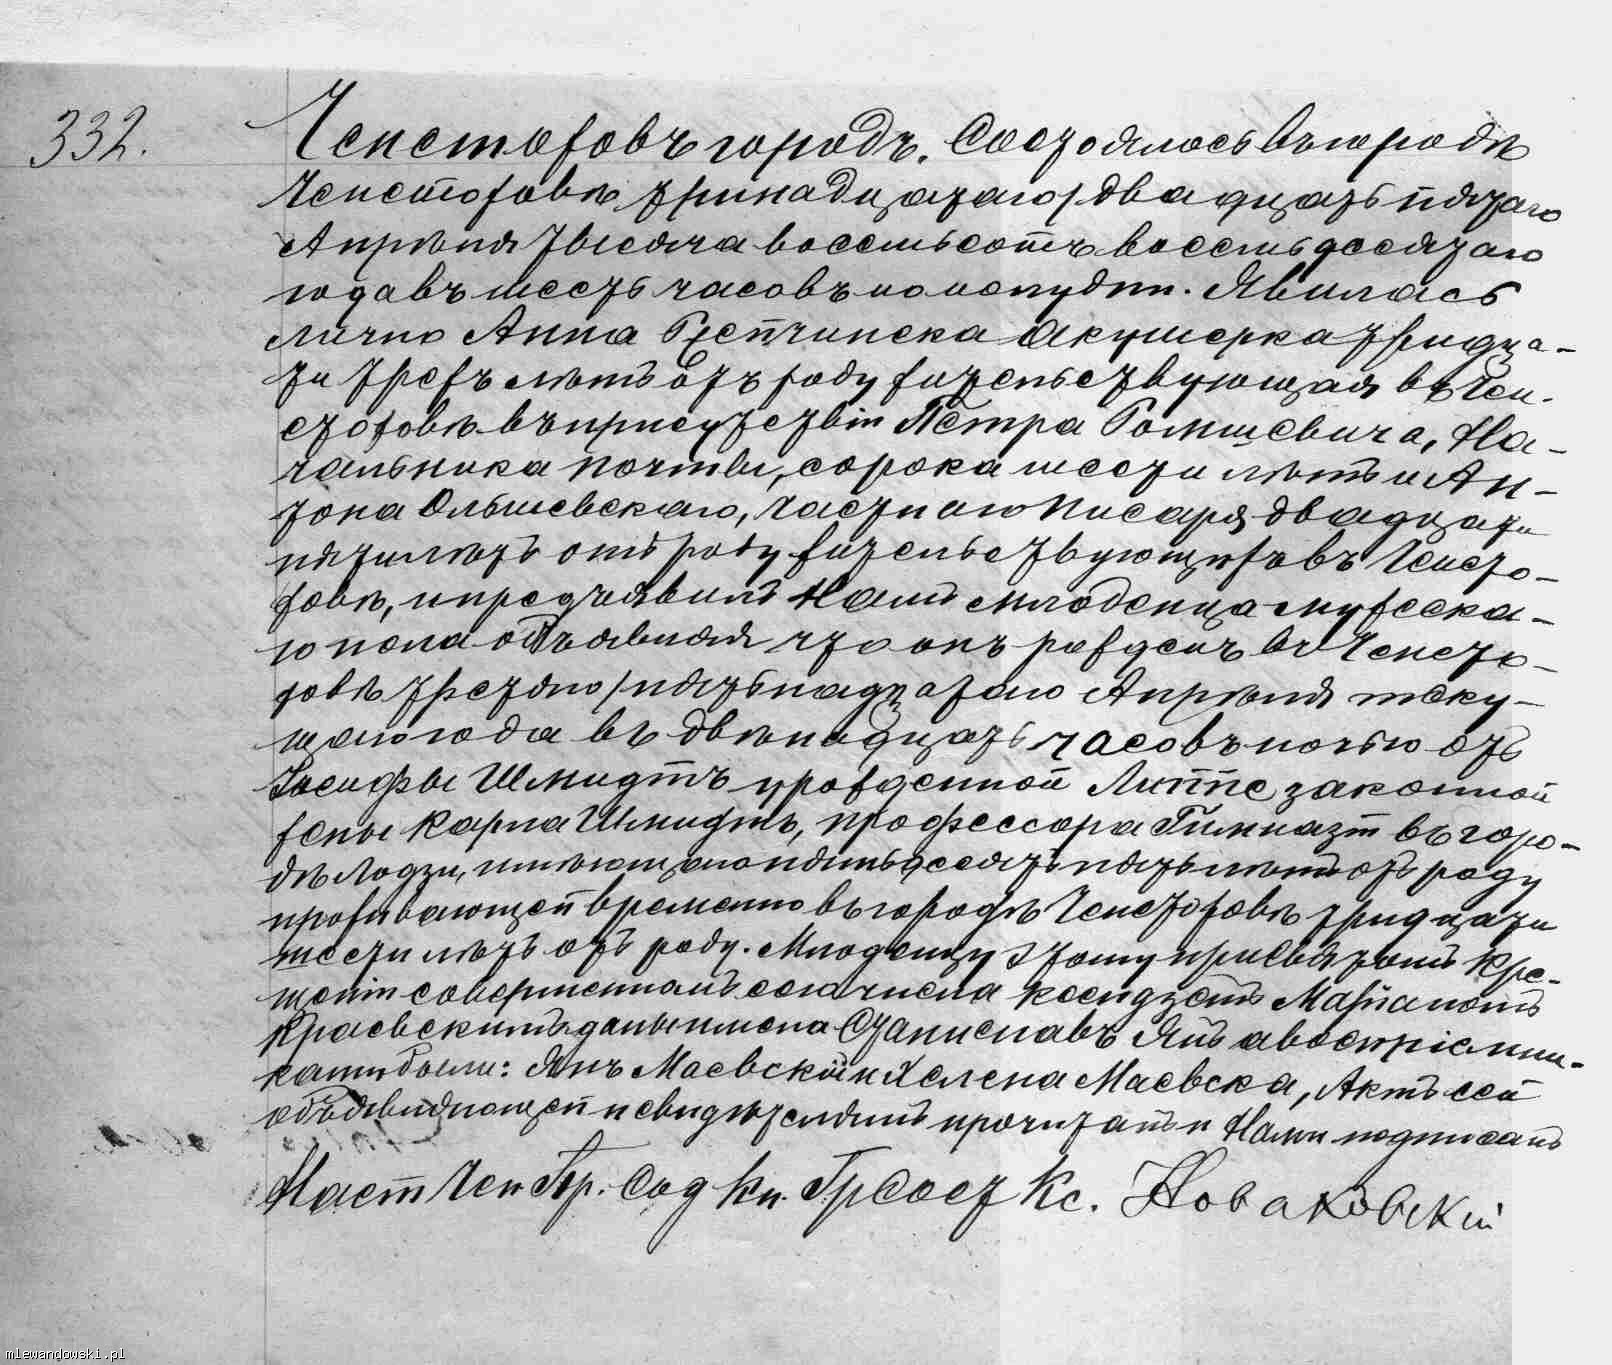 332.
Ченстоховъ городъ. Состоялось въ городѣ
Ченстоховѣ тринадцатаго/двадцать пятаго
Апрѣля тысяча восемьсотъ восемьдесятаго
года въ шесть часовъ по полудни. Явилась
лично Анна акушерка тридца-
ти трехъ лѣтъ отъ роду жительствующая въ Чен-
стоховѣ въ присутствіи Петра Ромишевича, На-
чальника почты, сорока шести лѣтъ и Ан-
тона Ольшевскаго, частнаго писаря двадцати
пяти лѣтъ отъ роду жительствующихъ въ Ченсто-
ховѣ, и предъявила Намъ младенца мужеска-
го пола объявляя что онъ рожденъ въ Ченсто-
ховѣ третяго/пятьнадцатаго Апрѣля теку-
щаго года въ двѣнадцать часовъ ночью отъ
Іосифы Шмидтъ урожденной Липпе законной
жены Карла Шмидтъ, профессора Гимназіи въ горо-
дѣ Лодзи, имѣющаго пятьдесятъ пять лѣтъ отъ роду
проживающей временно въ городѣ Ченстоховѣ тридцати
шести лѣтъ отъ роду. Младенцу этому при святомъ кре-
щеніи совершенномъ сего числа ксендзомъ Маріаномъ
Краевскимъ даны имена Станиславъ Янъ а воспріемни-
ками были: Янъ Маевскій и Хелена Маевска, Актъ сей
объявляющей и свидѣтелямъ прочитанъ и Нами подписанъ
Наст Чен Пр. Сод Кн. Гр Сост Кс. Новаковскій
mlewandowski.pl